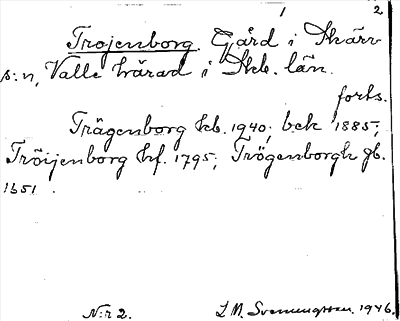 1 2
Trojenborg. Gård i Skärv
s:n, Valle härad i Skb. län.
forts.
Trägenborg kb. 1940; bek 1885;
Tröijenborg hf. 1795; Trögenborgh jb.
1651.
N:r 2. L M. Svenungsson. 1946.